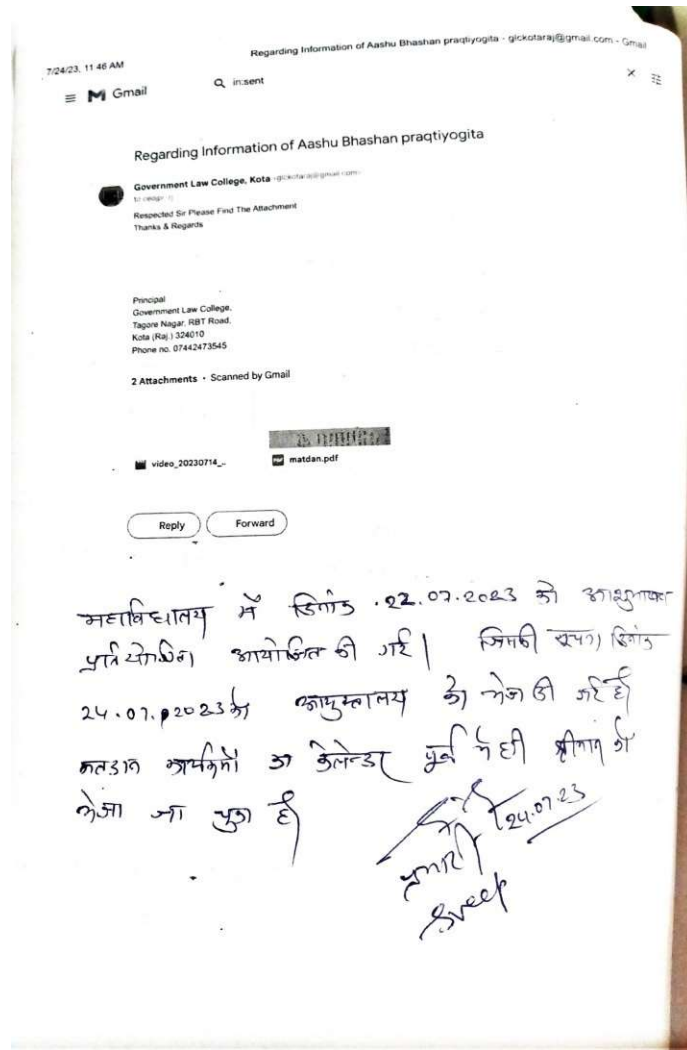 7/24/23, 11:46 AM
Regarding Information of Aashu Bhashan praqtiyogita - glckotaraj@gmail.com - Gmail
Gmail
in:sent
Regarding Information of Aashu Bhashan praqtiyogita
Government Law College, Kota <glckotaraj@gmail.com>
Respected Sir Please Find The Attachment
Thanks & Regards
Principal
Government Law College,
Tagore Nagar, RBT Road,
Kota (Raj.) 324010
Phone no. 07442473545
2 Attachments • Scanned by Gmail
video_20230714_...
PDF matdan.pdf
Reply
Forward
महाविद्यालय में दिनांक 22.07.2023 को आशुभाषण
प्रतियोगिता आयोजित की गई। जिसकी सूचना दिनांक
24.07.2023 को आयुक्तालय को भेज दी गई है।
मतदान कार्यक्रमों का केलेन्डर पूर्व में ही श्रीमान को
भेजा जा चुका है।
24.07.23
प्रभारी
Sveep